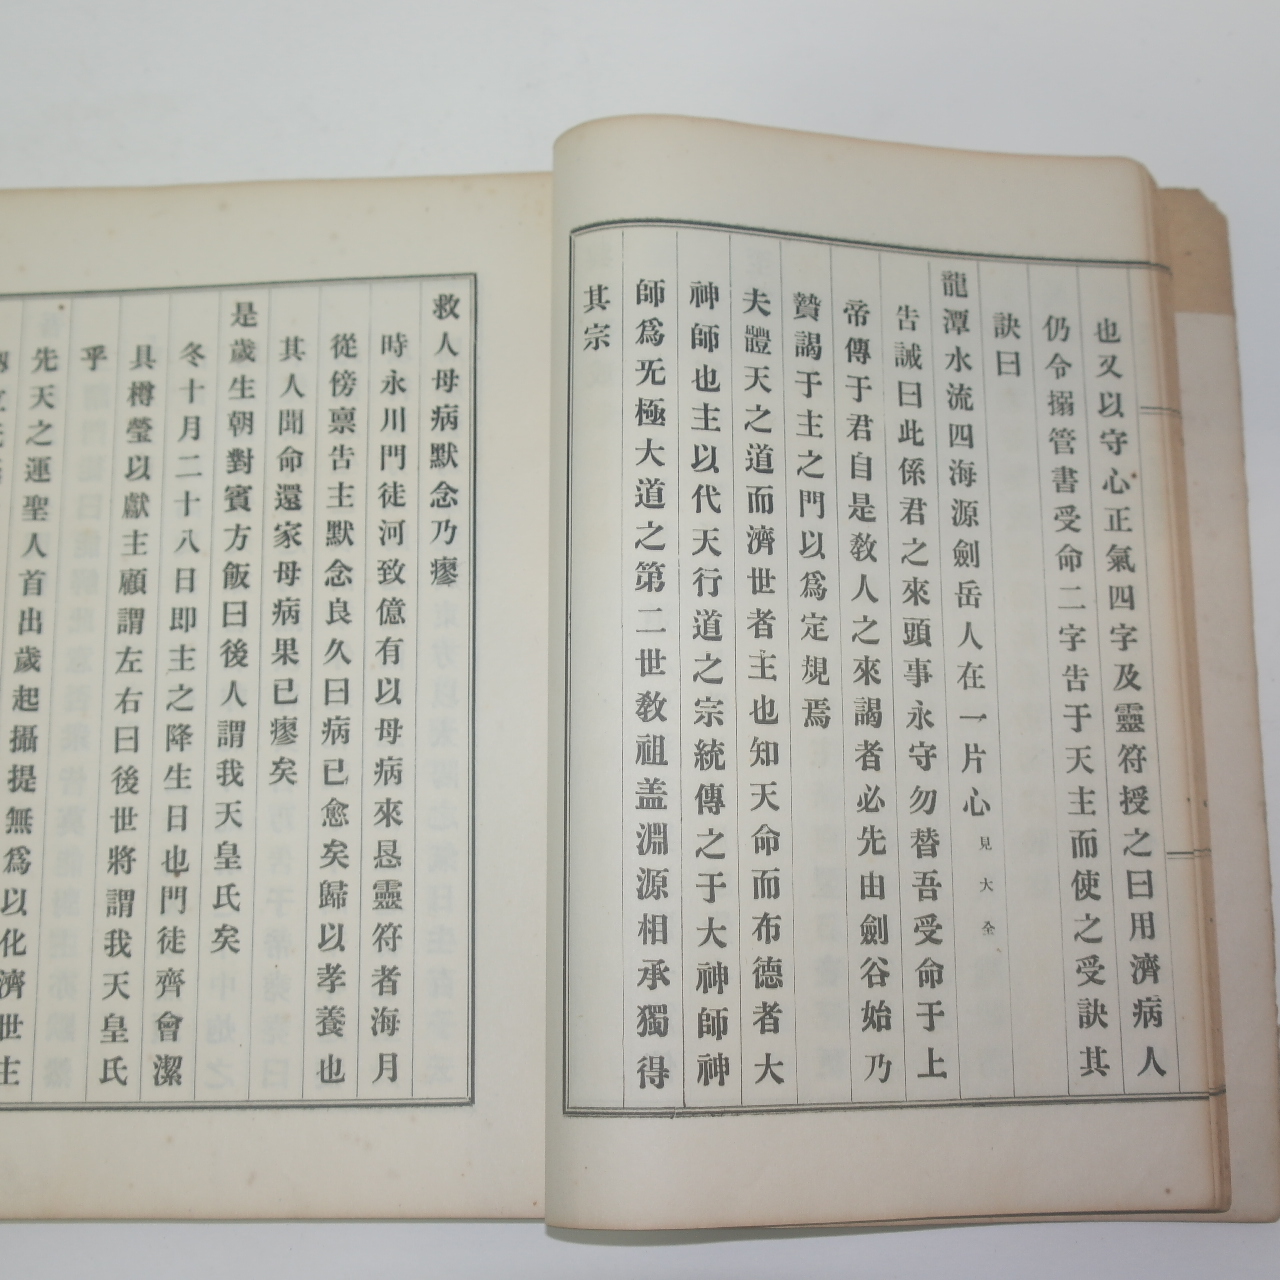 也又以守心正氣四字及靈符授之曰用濟病人
仍令搦管書受命二字告于天主而使之受訣其
訣曰
龍潭水流四海源劍岳人在一片心見大全
告誡曰此係君之來頭事永守勿替吾受命于上
帝傳于君自是敎人之來謁者必先由劍谷始乃
贄謁于主之門以爲定規焉
夫體天之道而濟世者主也知天命而布德者大
神師也主以代天行道之宗統傳之于大神師神
師爲旡極大道之第二世敎祖盖淵源相承獨得
其宗
救人母病默念乃瘳
時永川門徒河致億有以母病來恳靈符者海月
從傍禀告主默念良久曰病已愈矣歸以孝養也
其人聞命還家母病果已瘳矣
是歲生朝對賓方飯曰後人謂我天皇氏矣
冬十月二十八日即主之降生日也門徒齊會潔
具樽瑩以獻主顧謂左右曰後世將謂我天皇氏
乎
先天之運聖人首出歲起攝提無爲以化濟世主